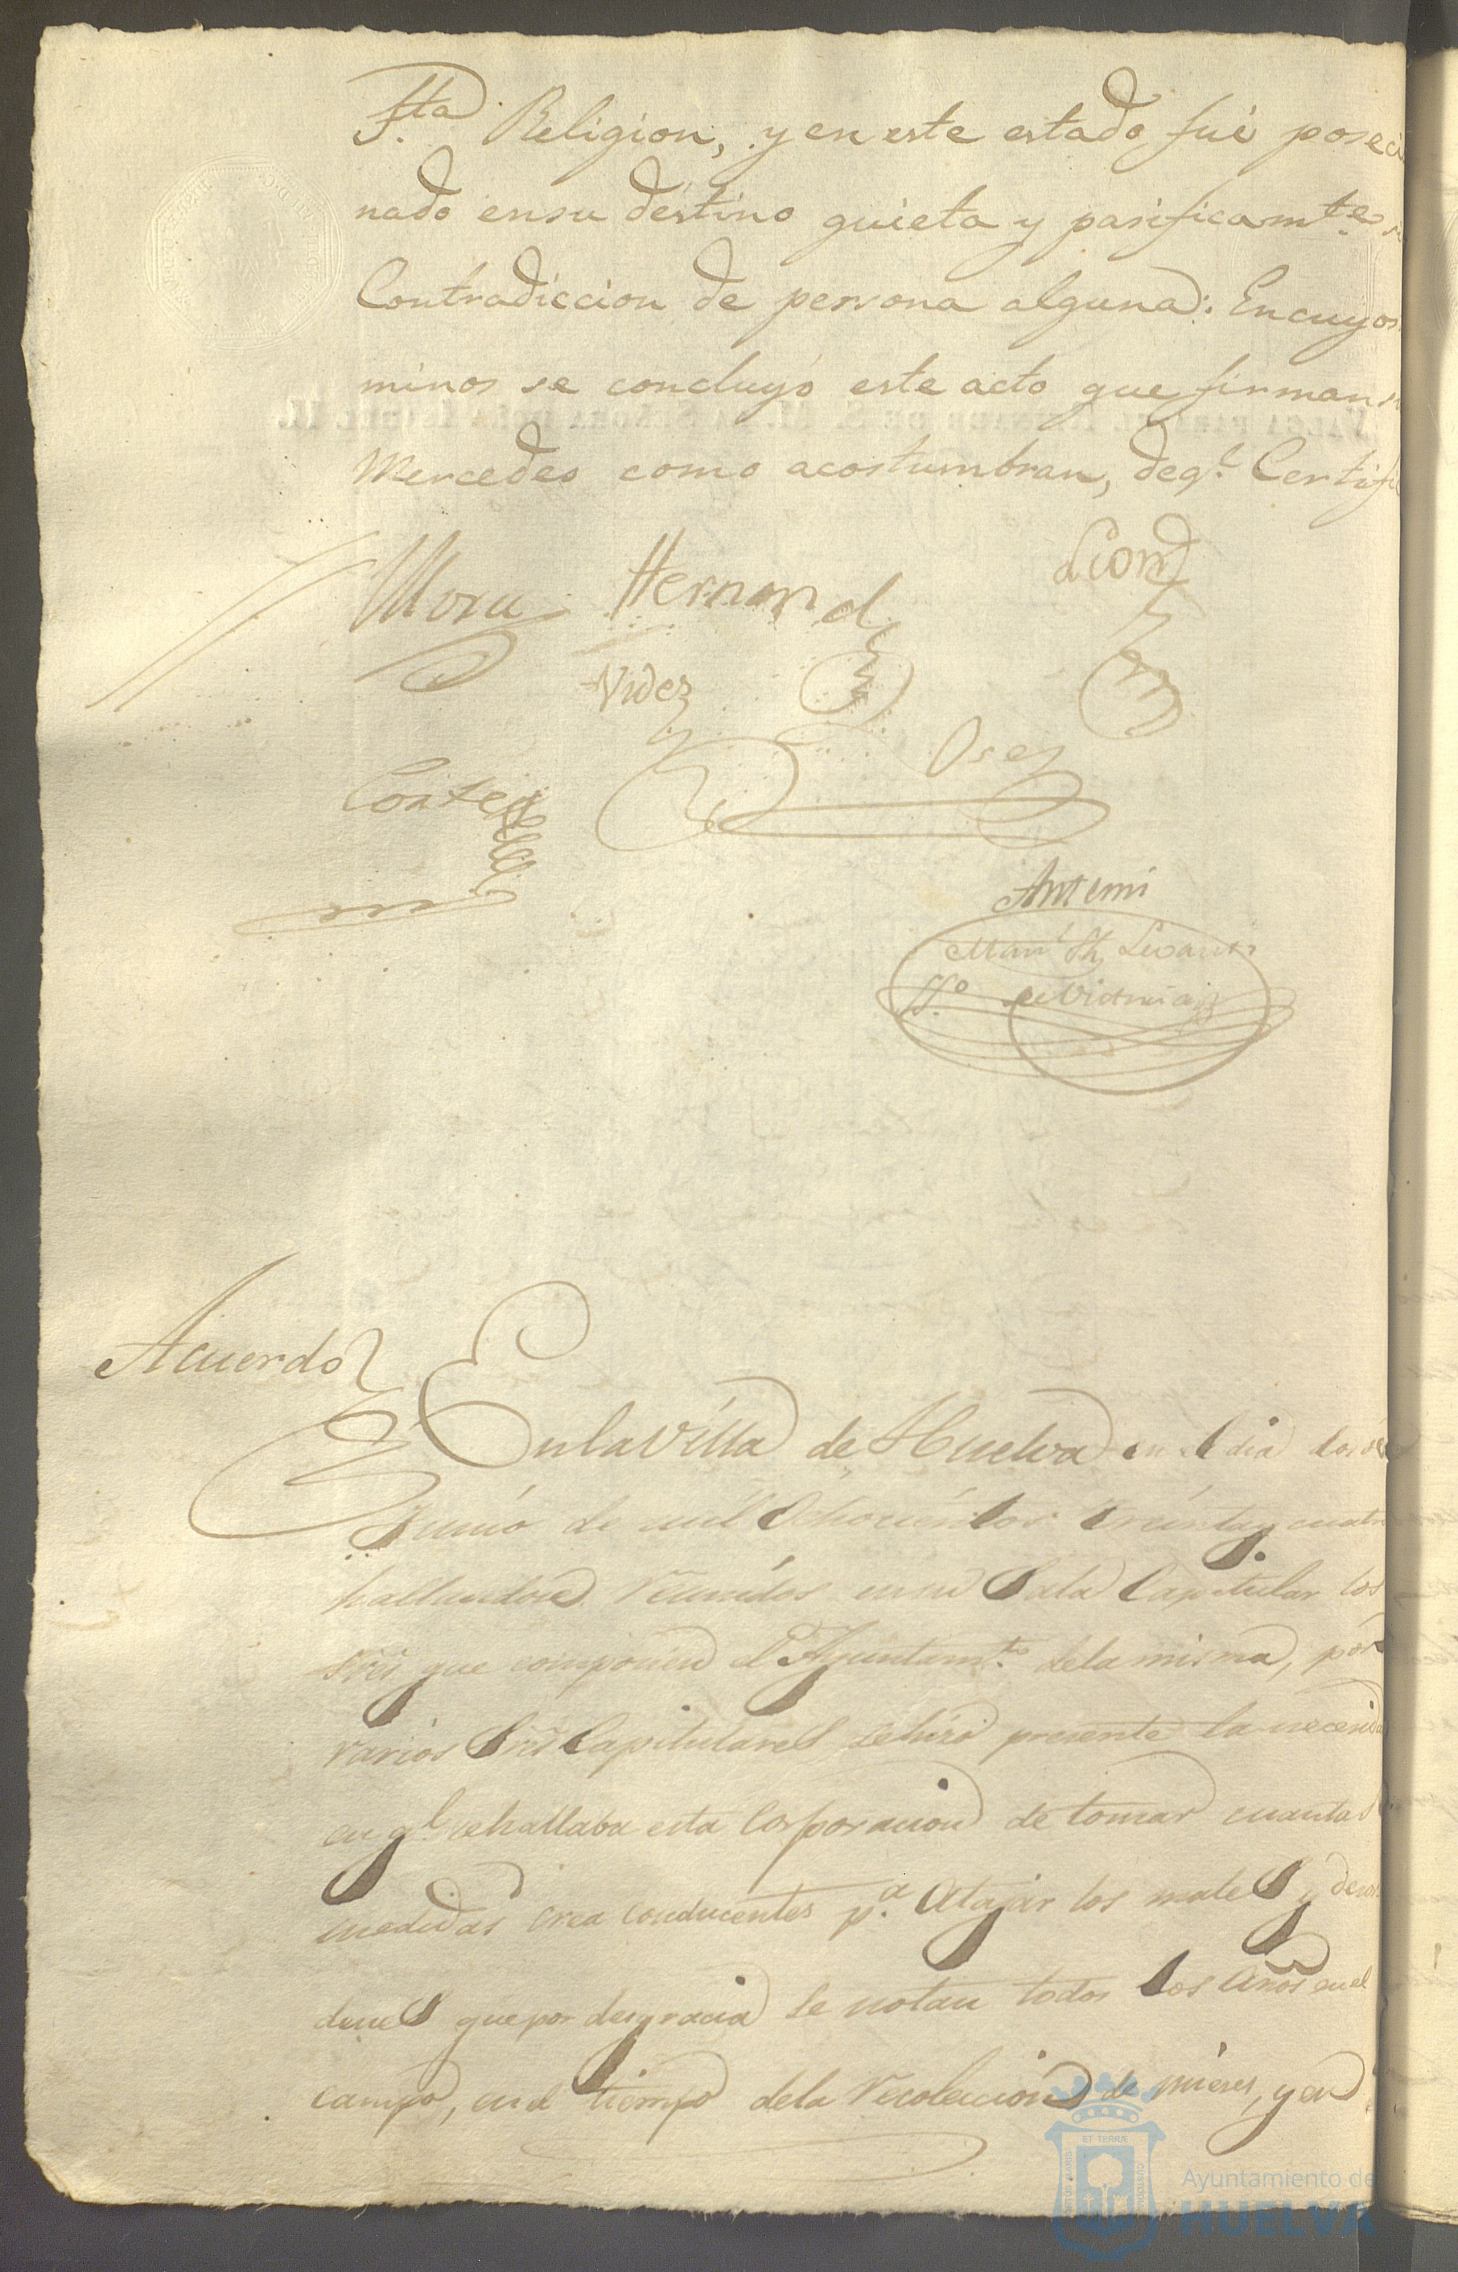 Sta Religion, y en este estado fué poseci
nado ensu destino quieta y pasificamte
Contradiccion de persona alguna: Encuyos
minos se concluyó este acto que firman
Mercedes como acostumbran, deql Certifi
Mora Hernand
Videz
Osez
Cortes
Antemi
Acuerdo
EnlaVilla de Huelva en el dia dos de
Junio de mil Ochocientos treinta y cuatro
hallandose reunidos ensu Sala Capitular los
sres que componen el Ayuntamto dela misma, por
varios Sres Capitulares sehizo presente la necesida
en ql sehallaba esta Corporacion de tomar cuantas
medidas crea conducentes pa Atajar los males y desor
denes que por desgracia se notan todos los Años en el
campo, en el tiempo dela recoleccion de mieses, y en
Ayuntamiento de
HUELVA